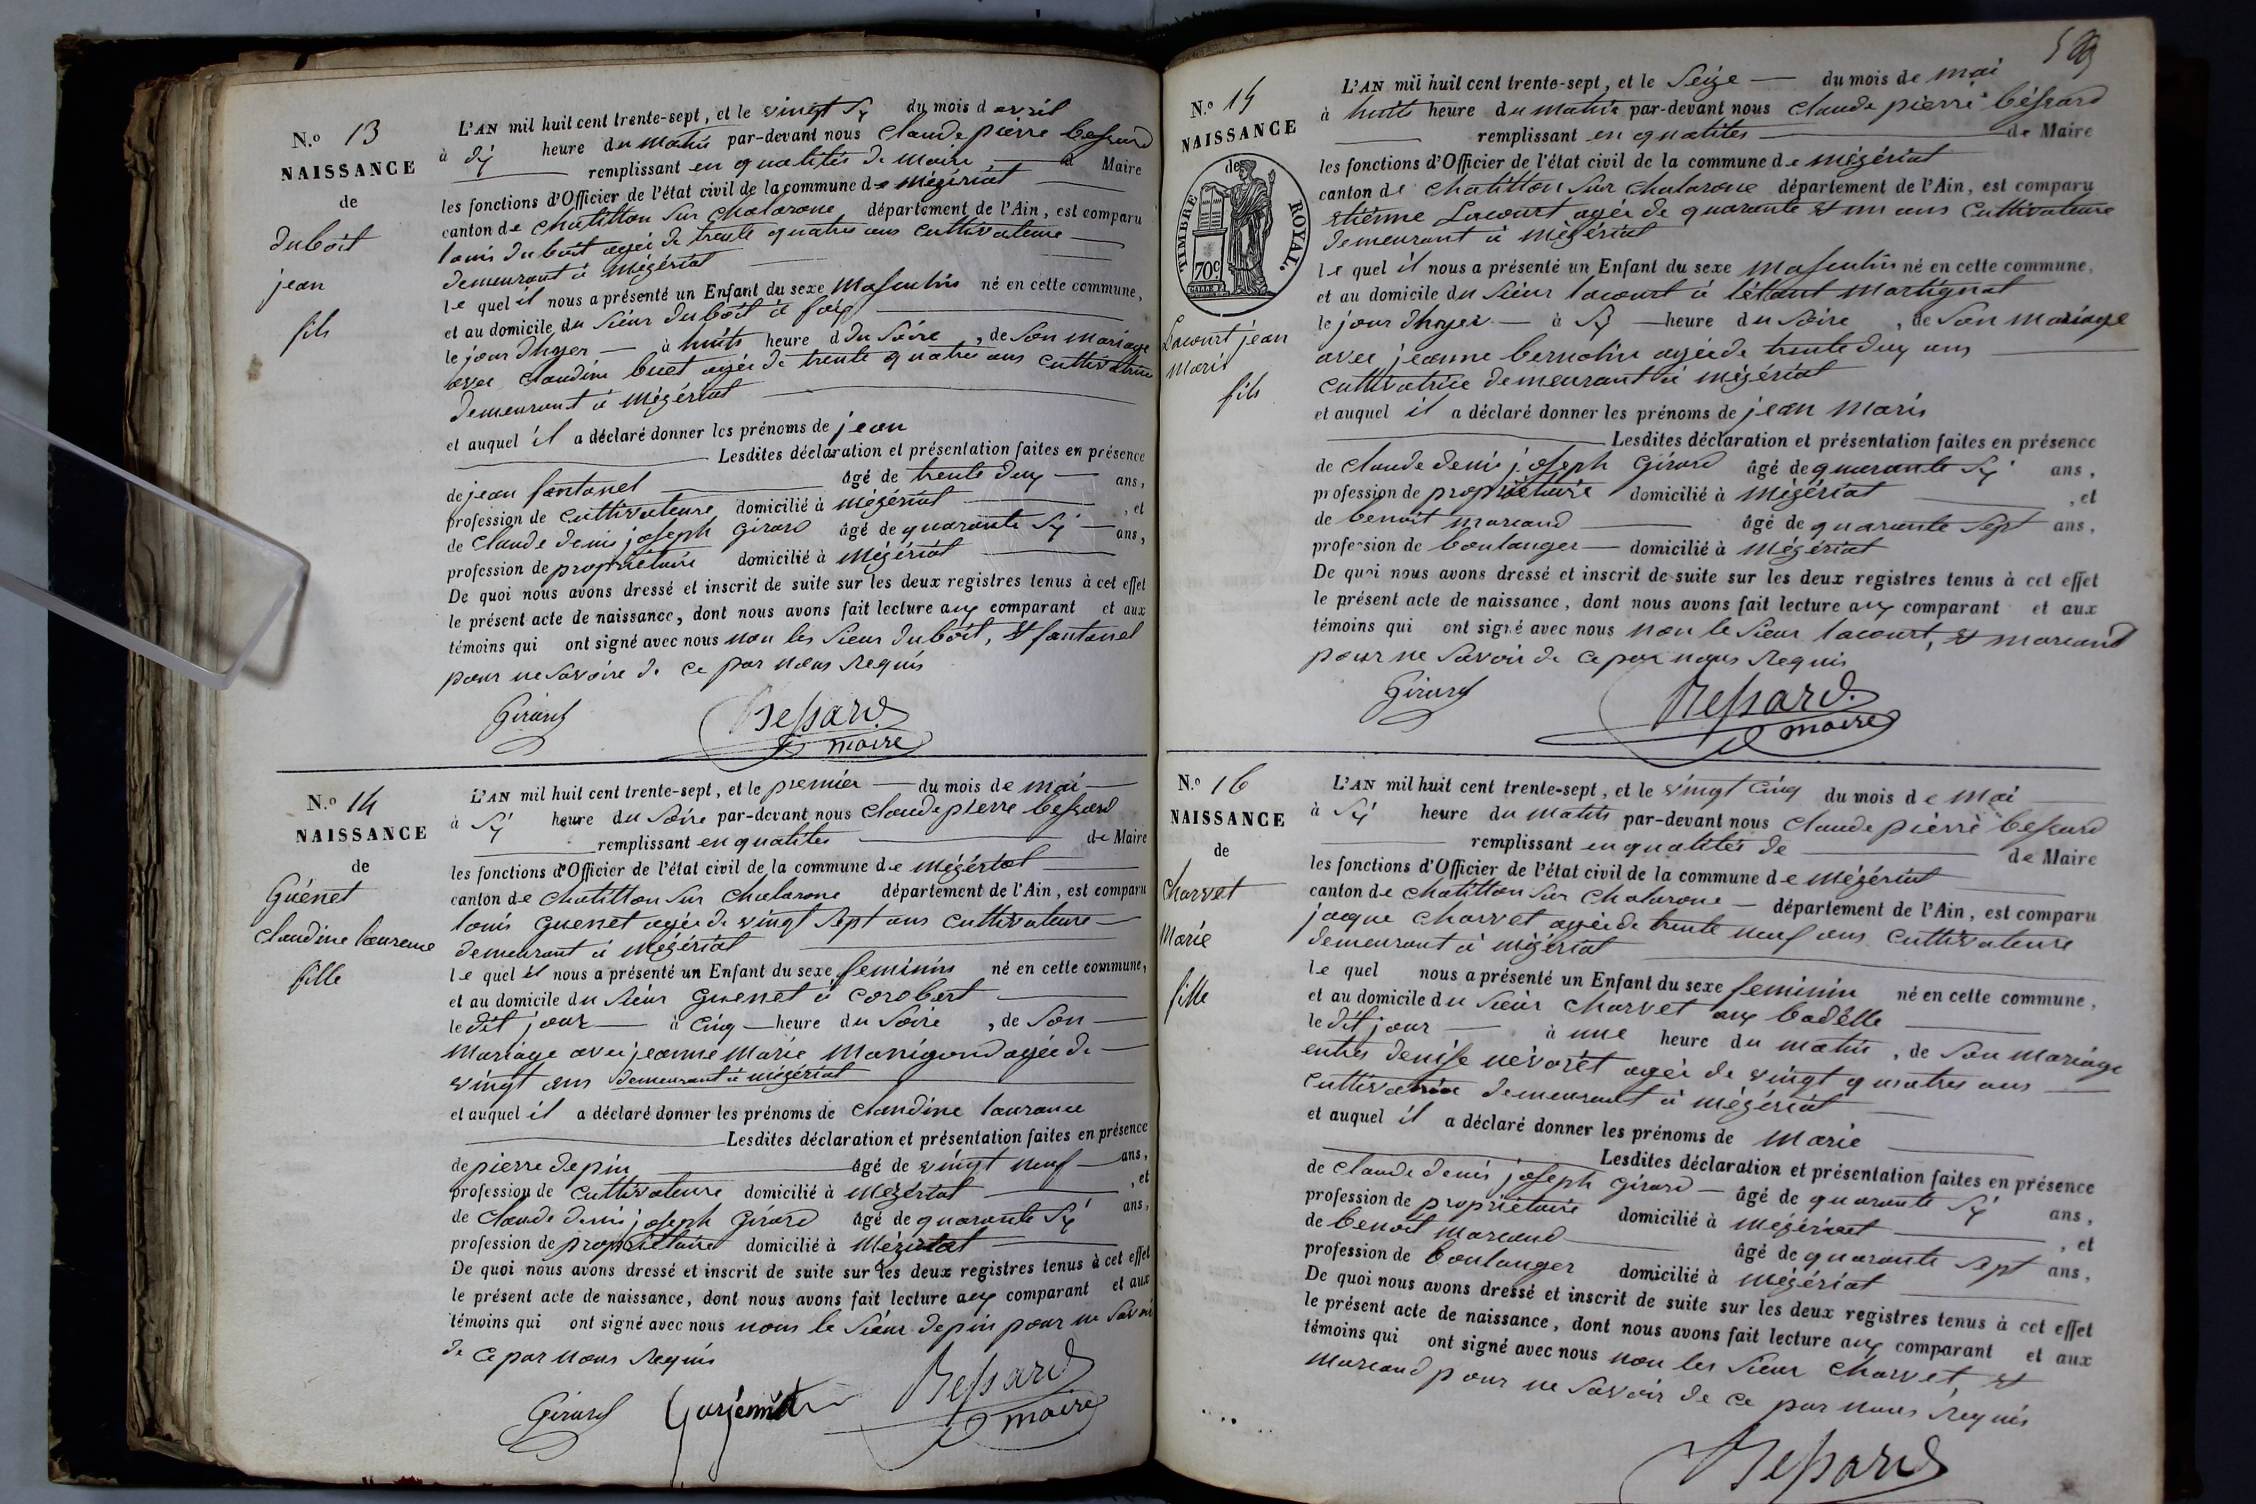 N.o 13
NAISSANCE
de
duboit
jean
fils
L'AN mil huit cent trente-sept, et le vingt sy du mois d avril
à dy heure du matin par-devant nous claude pierre bessard
remplissant en qualités de maire Maire
les fonctions d'Officier de l'état civil de la commune de mézériat
canton de chatillon sur chalarone département de l'Ain, est comparu
louis duboit agée de trente quatre ans cultivateure
demeurant à mézériat
le quel il nous a présenté un Enfant du sexe masculin né en cette commune,
et au domicile du sieur duboit à
le jour dhyer à huits heure d du soire, de son mariage
avec claudine buet agée de trente quatre ans cultivatrice
demeurant à mézériat
et auquel il a déclaré donner les prénoms de jean
Lesdites déclaration et présentation faites en présence
de jean fontanel âgé de trente duy ans,
profession de cultivateure domicilié à mézériat, et
de claude denis joseph Girard âgé de quarante sy ans,
profession de propriétaire domicilié à mézériat
De quoi nous avons dressé et inscrit de suite sur les deux registres tenus à cet effet
le présent acte de naissance, dont nous avons fait lecture auy comparant et aux
témoins qui ont signé avec nous non les sieur duboit, et fontanel
pour ne savoire de ce par nous requis
Girard Bessard
maire
N.o 14
NAISSANCE
de
Guénet
claudine laurance
fille
L'AN mil huit cent trente-sept, et le premier du mois de mai
à sy heure du soire par-devant nous claude pierre bessard
remplissant en qualités de Maire
les fonctions d'Officier de l'état civil de la commune de mézériat
canton de chatillon sur chalarone département de l'Ain, est comparu
louis Guenet agée de vingt sept ans cultivateure
demeurant à mézériat
le quel il nous a présenté un Enfant du sexe feminin né en cette commune,
et au domicile du sieur Guenet à corobert
le dit jour à cinq heure du soire, de son
mariage avec jeanne marie manigand agée de
vingt ans demeurant à mézériat
et auquel il a déclaré donner les prénoms de claudine laurance
Lesdites déclaration et présentation faites en présence
de pierre depin âgé de vingt neuf ans,
profession de cultivateure domicilié à mézériat, et
de claude denis joseph Girard âgé de quarante sy ans,
profession de propriétaire domicilié à mézériat
De quoi nous avons dressé et inscrit de suite sur les deux registres tenus à cet effet
le présent acte de naissance, dont nous avons fait lecture auy comparant et aux
témoins qui ont signé avec nous nous le sieur depin pour ne savoir
de ce par nous requis
Girard Bessard
maire
N.o 15
NAISSANCE
de
TIMBRE ROYAL.
70c
Lacourt jean
marit
fils
L'AN mil huit cent trente-sept, et le seize du mois de mai
à huits heure du matin par-devant nous claude pierre béssard
remplissant en qualités de Maire
les fonctions d'Officier de l'état civil de la commune de mézériat
canton de chatillon sur chalarone département de l'Ain, est comparu
etiénne Lacourt agée de quarante et un ans cultivateure
demeurant à mézériat
le quel il nous a présenté un Enfant du sexe masculin né en cette commune,
et au domicile du sieur lacourt à l'étant martignat
le jour dhyer à sy heure du soire, de son mariage
avec jeanne bernolin agée de trente duy ans
cultivatrice demeurant à mézériat
et auquel il a déclaré donner les prénoms de jean maris
Lesdites déclaration et présentation faites en présence
de claude denis joseph Girard âgé de quarante sy ans,
profession de propriétaire domicilié à mézériat, et
de benoit marcand âgé de quarante sept ans,
profession de boulanger domicilié à mézériat
De quoi nous avons dressé et inscrit de suite sur les deux registres tenus à cet effet
le présent acte de naissance, dont nous avons fait lecture auy comparant et aux
témoins qui ont signé avec nous non le sieur lacourt, et marcand
pour ne savoir de ce par nous requis
Girard Bessard
maire
N.o 16
NAISSANCE
de
charvet
Marie
fille
L'AN mil huit cent trente-sept, et le vingt cinq du mois de mai
à sy heure du matin par-devant nous claude pierre bessard
remplissant en qualités de de Maire
les fonctions d'Officier de l'état civil de la commune de mézériat
canton de chatillon sur chalarone département de l'Ain, est comparu
jaque charvet agée de trente neuf ans cultivateure
demeurant à mézériat
le quel nous a présenté un Enfant du sexe feminin né en cette commune,
et au domicile du sieur charvet auy badelle
le dit jour à une heure du matin, de son mariage
entres denisse névorét agée de vingt quatres ans
cultivatrice demeurant à mézériat
et auquel il a déclaré donner les prénoms de marie
Lesdites déclaration et présentation faites en présence
de claude denis joseph Girard âgé de quarante sy ans,
profession de propriétaire domicilié à mézériat, et
de benoit marcand âgé de quarante sept ans,
profession de boulanger domicilié à mézériat
De quoi nous avons dressé et inscrit de suite sur les deux registres tenus à cet effet
le présent acte de naissance, dont nous avons fait lecture auy comparant et aux
témoins qui ont signé avec nous non les sieur charvet et
marcand pour ne savoir de ce par nous requis
Bessard